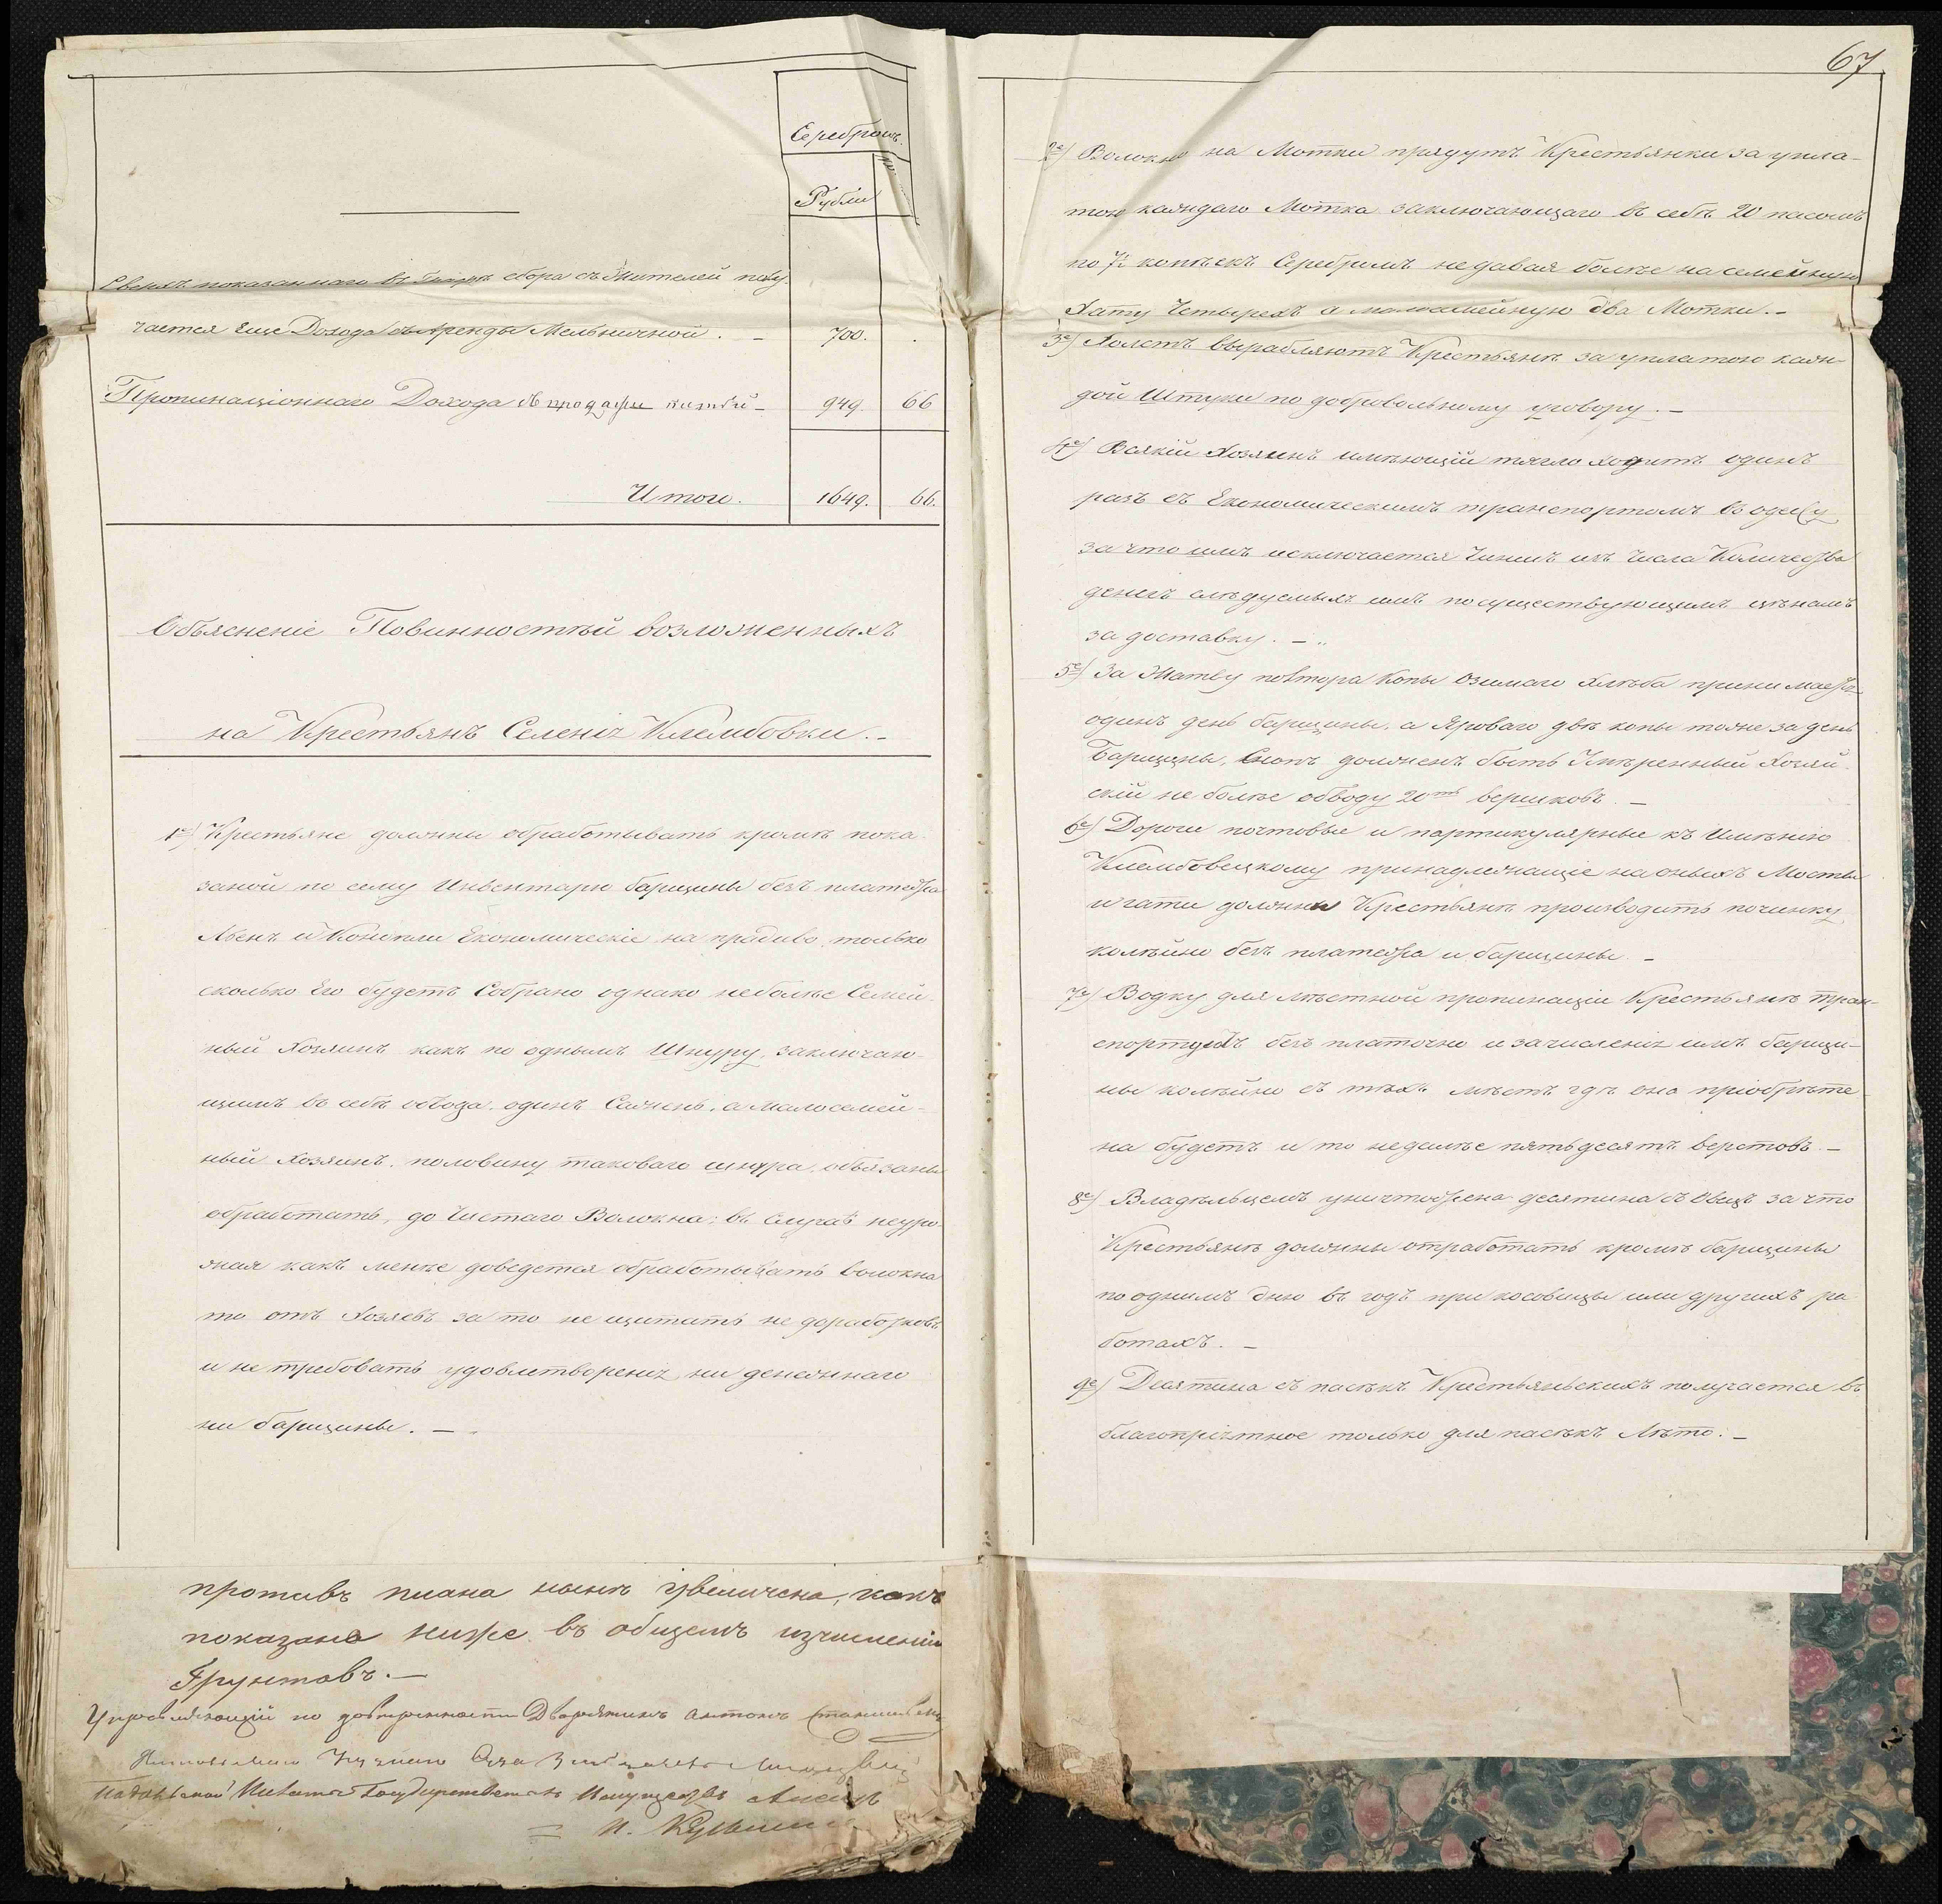 Серебромъ.
Рубли
Сверхъ показаннаго въ сбора съ Жителей полу-
чается еще Дохода съ Аренды Мельничной . – 700. .
Пропинаціоннаго Дохода 949. 66
Итого. 1649. 66.
Объясненіе Повинностѣй возложенныхъ
на Крестьянъ Селенія Клембовки. –
1е) Крестьяне должны обработывать кромѣ пока-
заной по сему Инвентарю барщины безъ платежа
Льенъ и Конопли Економическіе на прядиво, только
сколько Его будетъ Собрано однако не болѣе Семей-
ный Хозяинъ какъ по однымъ Шнуру, заключаю-
щимъ въ себѣ обвода одинъ Сажень, а Малосемей-
ный Хозяинъ половину таковаго шнура, обязаны
обработать, до Чистаго Волокна; въ случаѣ неуро-
жая какъ менѣе доведется обработывать волокна
то отъ Хозяевъ за то не щитать не доработковъ
и не требовать удовлетворенія ни денежнаго
ни барщины. –
против плана нынѣ увеличена, какъ
показано ниже въ общемъ изчисленіи
Грунтовъ. –
Управляющій по довѣренности Дворянинъ Антонъ
Государственныхъ Имуществъ
67
2е) Волокно на Мотки прядутъ Крестьянки за упла-
тою каждаго Мотка заключающаго въ себѣ 20 пасомъ
по 7½ копѣекъ Серебромъ не давая болѣе на семейную
Хату Четырехъ а малосемейную два Мотки. –
3е) Холстъ вырабляютъ Крестьянѣ за уплатою каж-
дой Штуки по добровольному уговору. –
4е) Всякій Хозяинъ имѣющій тягло ходитъ одинъ
разъ съ Економическимъ транспортомъ въ одессу
за что имъ исключается Чиншъ изъ Числа Количества
денегъ слѣдуемыхъ имъ по существующимъ цѣнамъ
за доставку. – „
5е) За Жатву повтора Копы Озимаго Хлѣба принимается
одинъ день барщины, а Яроваго двѣ копы тоже за день
Барщины, Снопъ долженъ быть Умѣренный Хозяй-
скій не болѣе обводу 20ти вершковъ. –
6е) Дороги почтовые и партикулярные къ Имѣнію
Клембовецкому принадлежащіе на оныхъ Мосты
и гати должны Крестьянѣ производить починку
колѣйно безъ платежа и барщины. –
7е) Водку для мѣстной пропинаціи Крестьянѣ тран-
спортуютъ безъ платочно и зачисленія имъ барщи-
ны колѣйно съ тѣхъ мѣстъ гдѣ она пріобрѣте-
на будетъ и то недалѣе пятьдесятъ верстовъ. –
8е) Владѣльцемъ уничтожена десятина съ Овецъ за что
Крестьянѣ должны отработать кромѣ барщины
по однимъ дню въ годъ при косовицы или другихъ ра-
ботахъ. –
9е) Десятина съ пасѣкъ Крестьяньскихъ получается въ
благопріятное только для пасѣкъ Лѣто. –